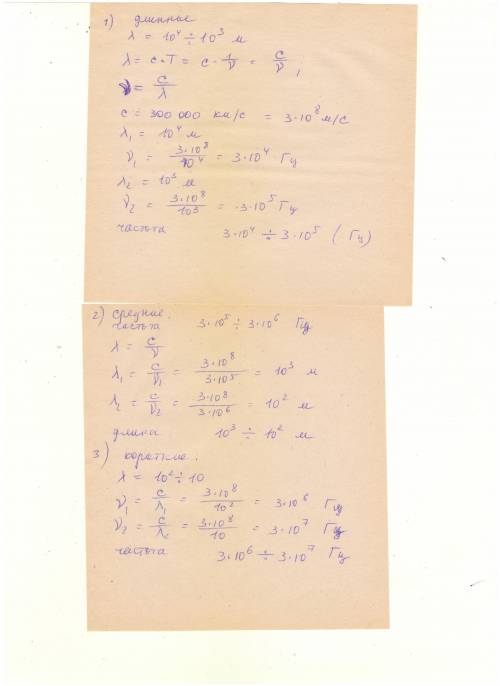 1) длинные
λ = 10⁴ ÷ 10³ м
λ = c·T = c · 1/ν = c/ν,
ν = c/λ
c = 300 000 км/с = 3·10⁸ м/с
λ₁ = 10⁴ м
ν₁ = 3·10⁸/10⁴ = 3·10⁴ Гц
λ₂ = 10³ м
ν₂ = 3·10⁸/10³ = 3·10⁵ Гц
частота 3·10⁴ ÷ 3·10⁵ (Гц)
2) средние.
частота 3·10⁵ ÷ 3·10⁶ Гц
λ = c/ν
λ₁ = c/ν₁ = 3·10⁸/3·10⁵ = 10³ м
λ₂ = c/ν₂ = 3·10⁸/3·10⁶ = 10² м
длина 10³ ÷ 10² м
3) короткие.
λ = 10² ÷ 10
ν₁ = c/λ₁ = 3·10⁸/10² = 3·10⁶ Гц
ν₂ = c/λ₂ = 3·10⁸/10 = 3·10⁷ Гц
частота 3·10⁶ ÷ 3·10⁷ Гц